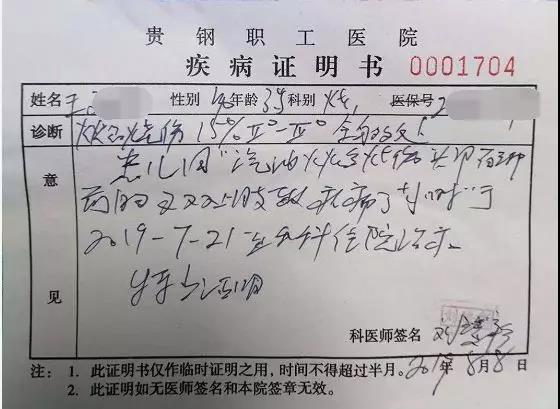 贵钢职工医院
疾病证明书 0001704
姓名 王 性别 年龄 3岁 科别 烧 医保号 2
诊断 火焰烧伤 15% II°-II° 全身多处
意见
患儿因"汽油火焰烧伤头 双上肢 疼痛 于
2019-7-21 在我科住院治疗。
特此证明
科医师签名
2019年8月8日
注：1. 此证明书仅作临时证明之用，时间不得超过半月。
2. 此证明如无医师签名和本院签章无效。